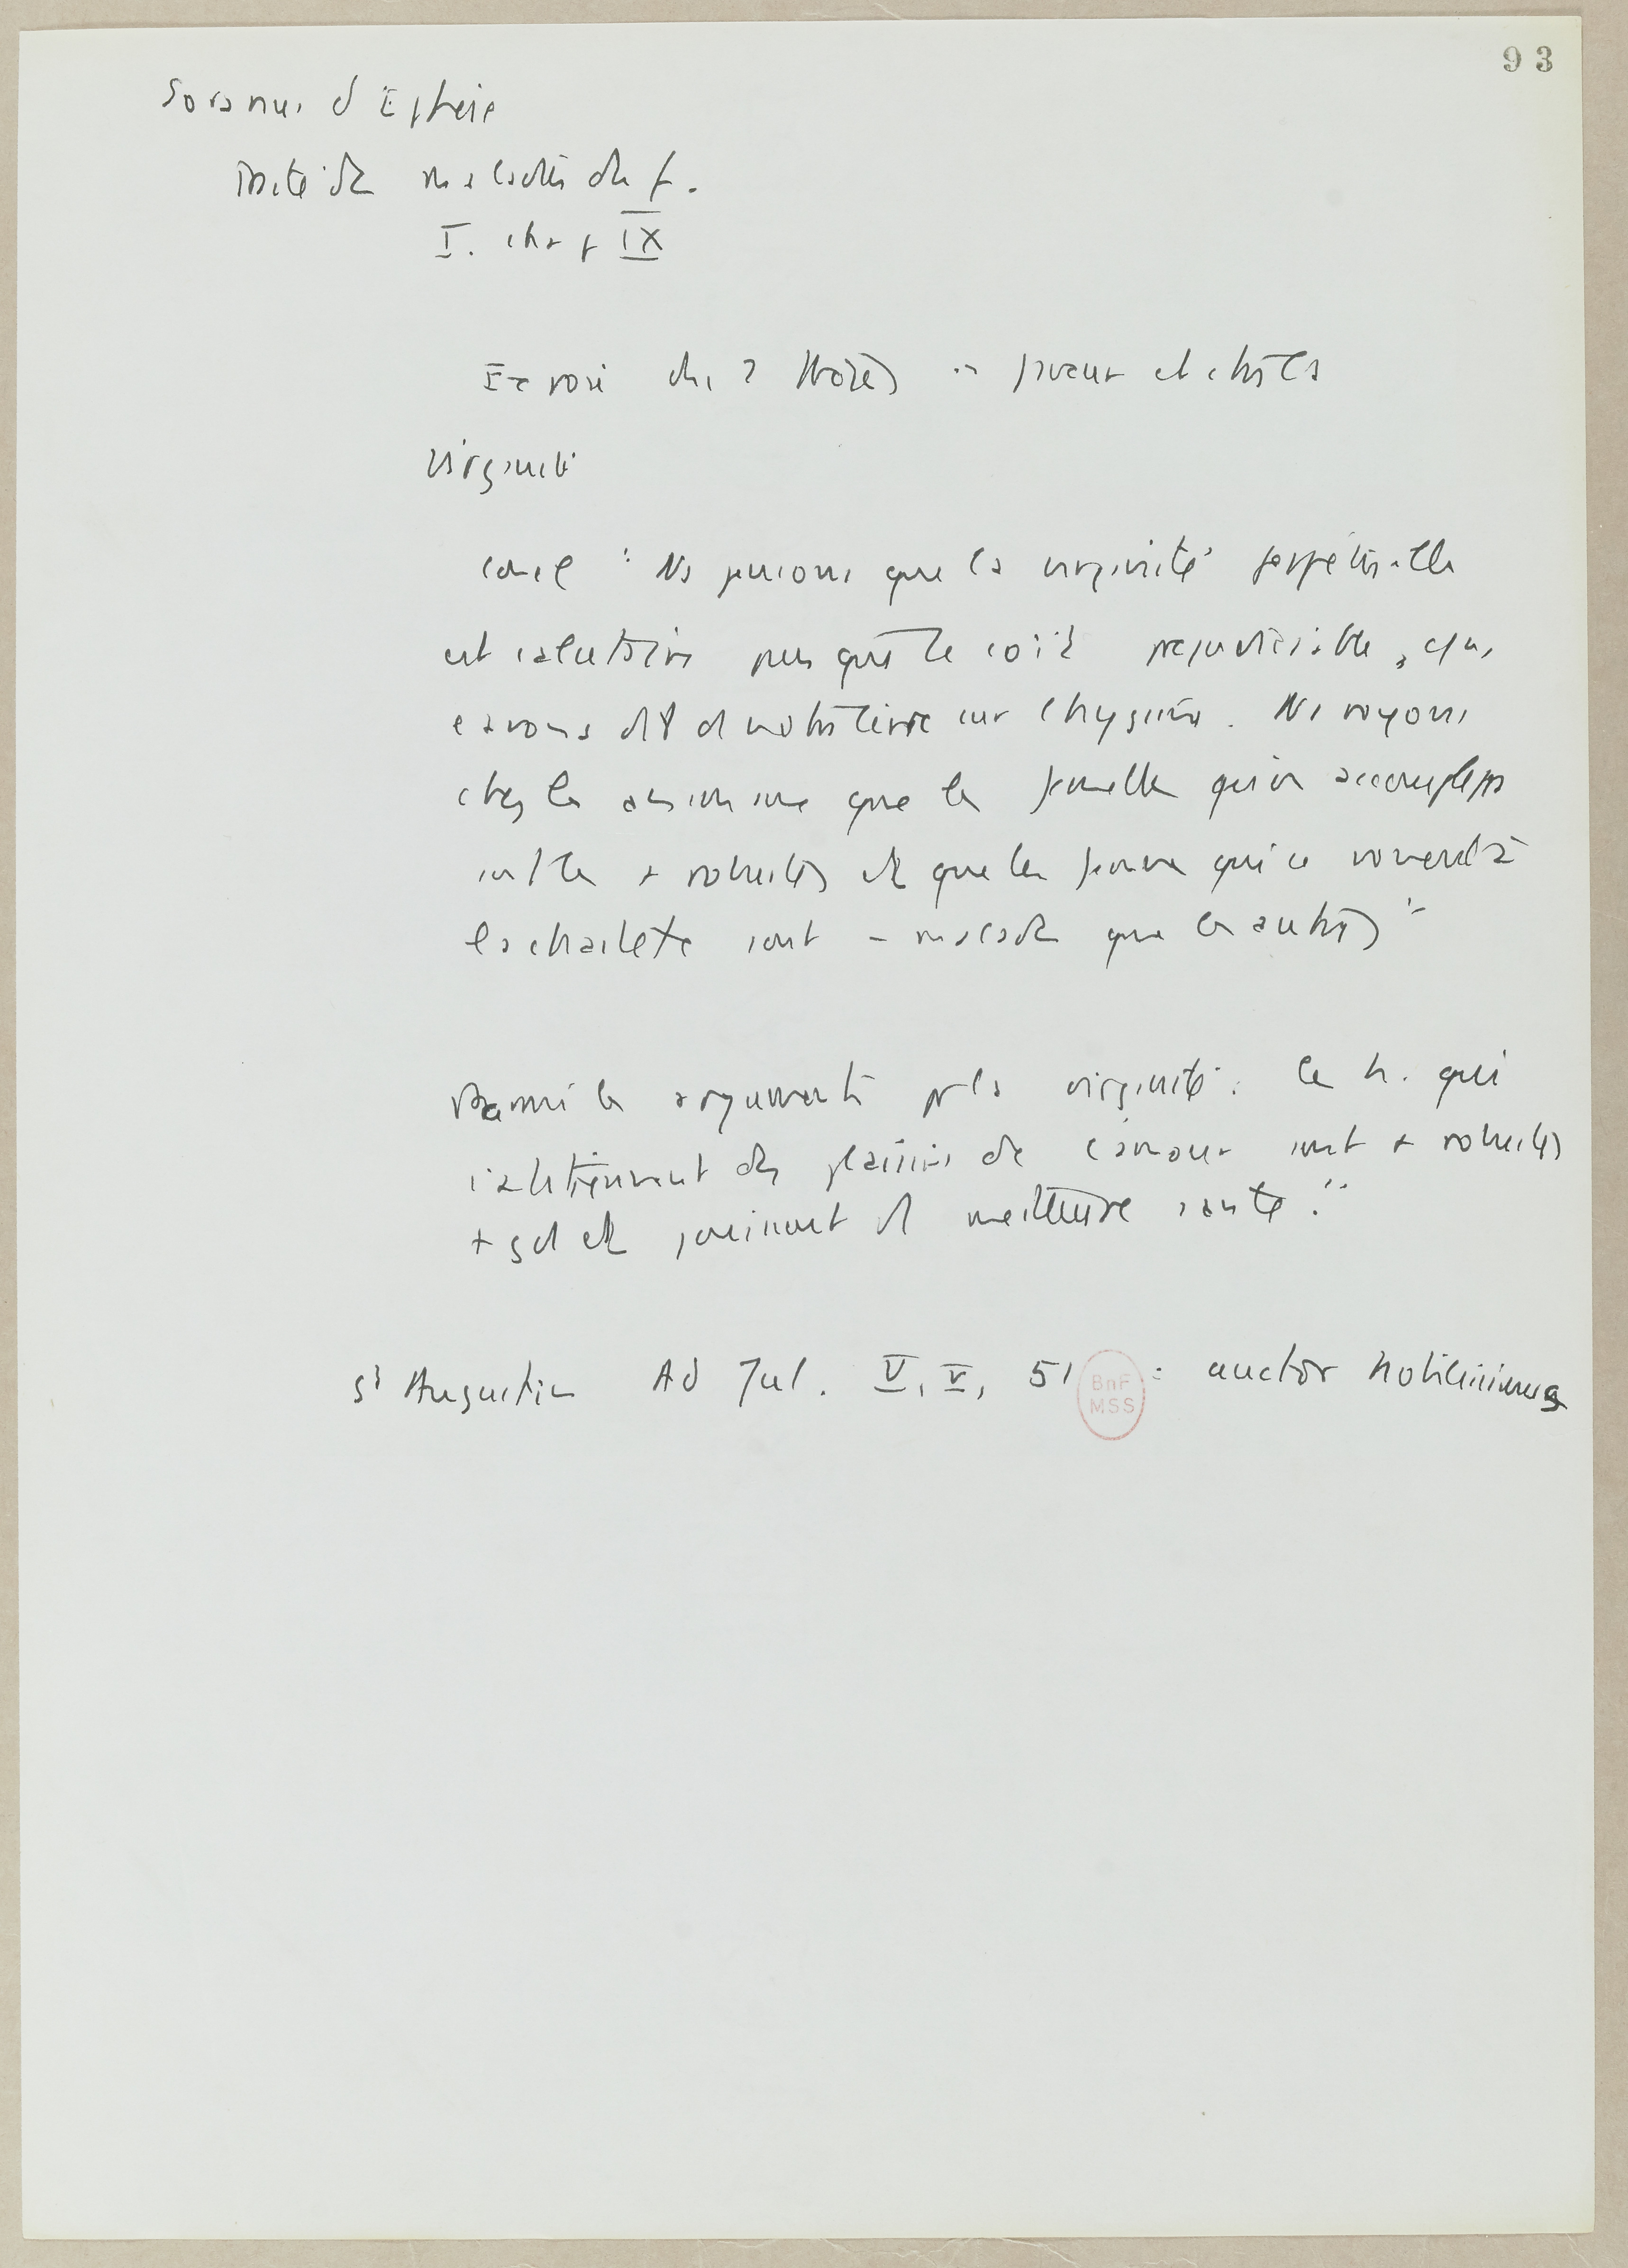 93
Soranus d'Ephèse
Traité des maladies des f.
I. chap IX
Exposé des 2 thèses en faveur et contre la
virginité
Concl : "Ns pensons que la virginité perpétuelle
est salutaire puisque le coït préjudiciable, cf. ns
l'avons dit ds notre livre sur l'hygiène. Ns voyons
chez les animaux que les femelles qu'on accouple pas
sont les + robustes et que les femmes qui se vouent à
la chasteté sont - malades que les autres"
Parmi les arguments pr la virginité : les h. qui
s'abstiennent des plaisirs de l'amour sont + robustes
+ gds et jouissent d'1 meilleure santé."
St Augustin Ad Jul. V, V, 51 : auctor nobilissimus
BnF
MSS